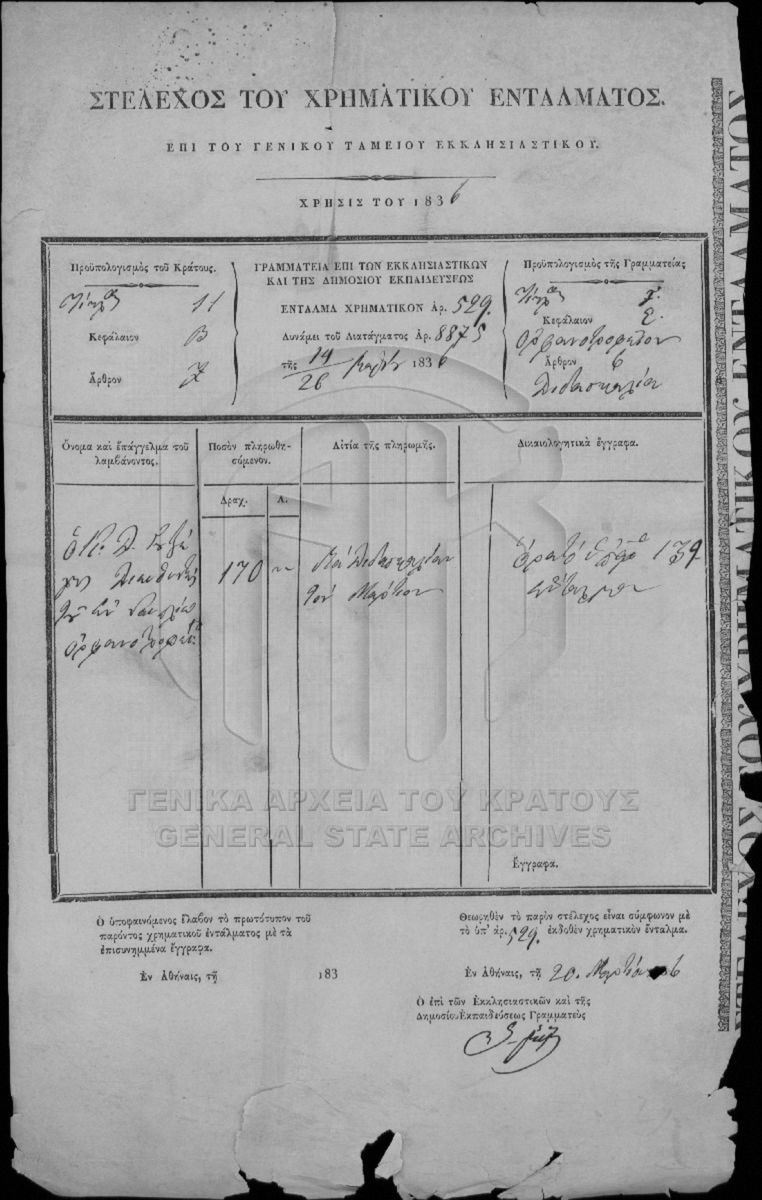 ΣΤΕΛΕΧΟΣ ΤΟΥ ΧΡΗΜΑΤΙΚΟΥ ΕΝΤΑΛΜΑΤΟΣ.
ΕΠΙ ΤΟΥ ΓΕΝΙΚΟΥ ΤΑΜΕΙΟΥ ΕΚΚΛΗΣΙΑΣΤΙΚΟΥ.
ΧΡΗΣΙΣ ΤΟΥ 1836
Προϋπολογισμὸς τοῦ Κράτους.
11
Κεφάλαιον Β
Ἄρθρον
ΓΡΑΜΜΑΤΕΙΑ ΕΠΙ ΤΩΝ ΕΚΚΛΗΣΙΑΣΤΙΚΩΝ
ΚΑΙ ΤΗΣ ΔΗΜΟΣΙΟΥ ΕΚΠΑΙΔΕΥΣΕΩΣ
ΕΝΤΑΛΜΑ ΧΡΗΜΑΤΙΚΟΝ ἀρ. 529.
Δυνάμει τοῦ Διατάγματος Ἀρ. 8875
τῆς 14/26 1836
Προϋπολογισμὸς τῆς Γραμματείας
Κεφάλαιον Ε.
Ὀρφανοτροφεῖον
Ἄρθρον 6
Διδασκαλία
Ὄνομα καὶ ἐπάγγελμα τοῦ
λαμβάνοντος.
Ποσὸν πληρωθη-
σόμενον.
Δραχ. Λ.
Αἰτία τῆς πληρωμῆς.
Δικαιολογητικὰ ἔγγραφα.
Διευθυντὴς
ὀρφανοτροφείου
170
Διὰ διδασκαλίαν
τὸν Μάρτιον
139
Ἔγγραφα.
Ὁ ὑποφαινόμενος ἔλαβον τὸ πρωτότυπον τοῦ
παρόντος χρηματικοῦ ἐντάλματος μὲ τὰ
ἐπισυνημμένα ἔγγραφα.
Ἐν Ἀθήναις, τῇ 183
Θεωρηθὲν τὸ παρὸν στέλεχος εἶναι σύμφωνον μὲ
τὸ ὑπ' ἀρ. 529. ἐκδοθὲν χρηματικὸν ἔνταλμα.
Ἐν Ἀθήναις, τῇ 20. Μαρτίου 6
Ὁ ἐπὶ τῶν Ἐκκλησιαστικῶν καὶ τῆς
Δημοσίου Ἐκπαιδεύσεως Γραμματεὺς
ΓΕΝΙΚΑ ΑΡΧΕΙΑ ΤΟΥ ΚΡΑΤΟΥΣ
GENERAL STATE ARCHIVES
ΣΤΕΛΕΧΟΣ ΧΡΗΜΑΤΙΚΟΥ ΕΝΤΑΛΜΑΤΟΣ